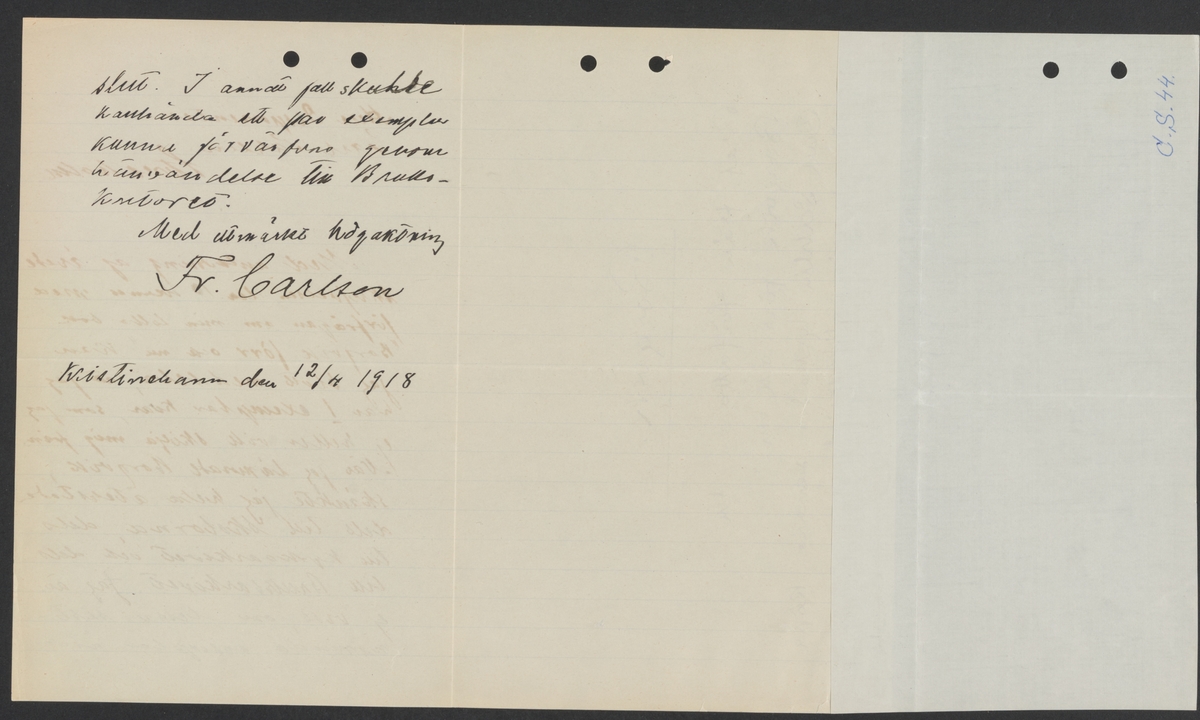 slut. I annat fall skulle
kanhända ett par exemplar
kunna förvärfvas genom
hänvändelse till Bruks-
kontoret.
Med utmärkt högaktning
Fr. Carlson
Kristinehamn den 12/4 1918
C.S. 44.